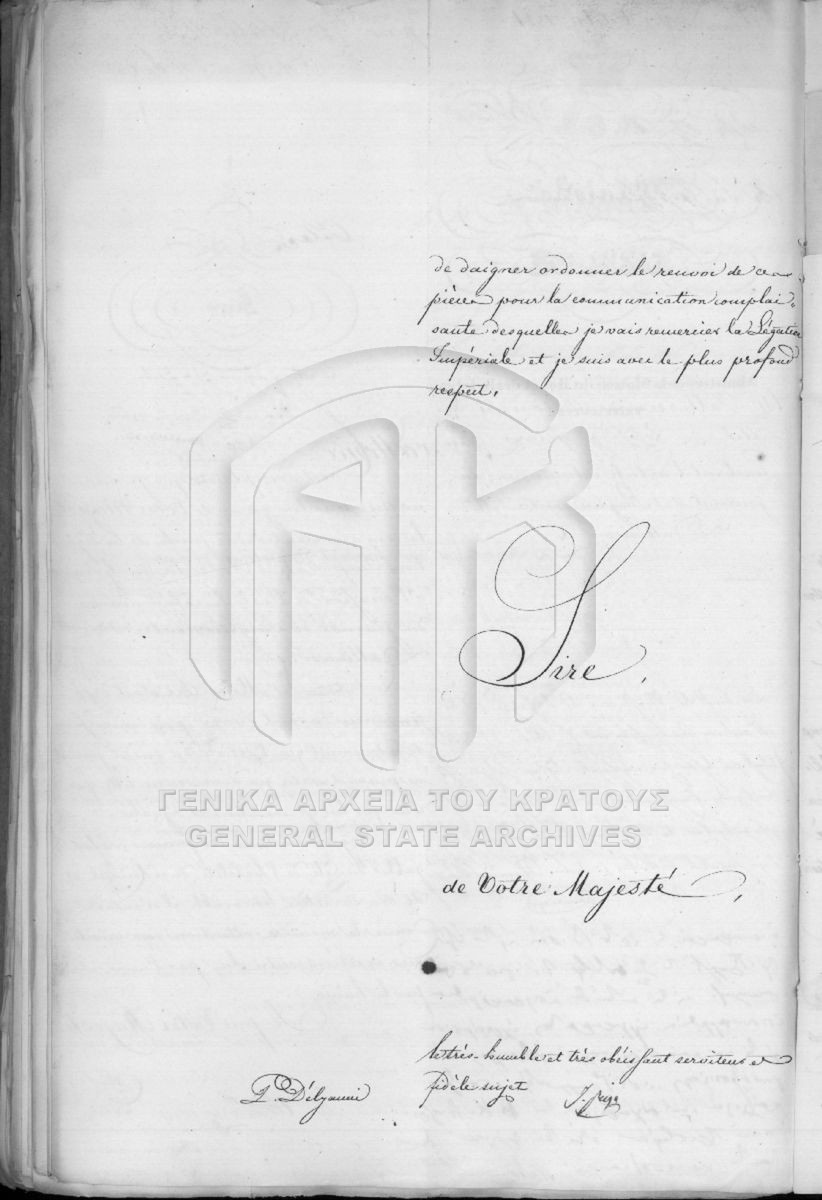 de daigner ordonner le renvoi de ces
pièces pour la communication complai-
sante desquelles je vais remercier la Légation
Impériale et je suis avec le plus profond
respect,
Sire,
ΓΕΝΙΚΑ ΑΡΧΕΙΑ ΤΟΥ ΚΡΑΤΟΥΣ
GENERAL STATE ARCHIVES
de Votre Majesté,
le très-humble et très obéissant serviteur et
fidèle sujet
P. Délyanni